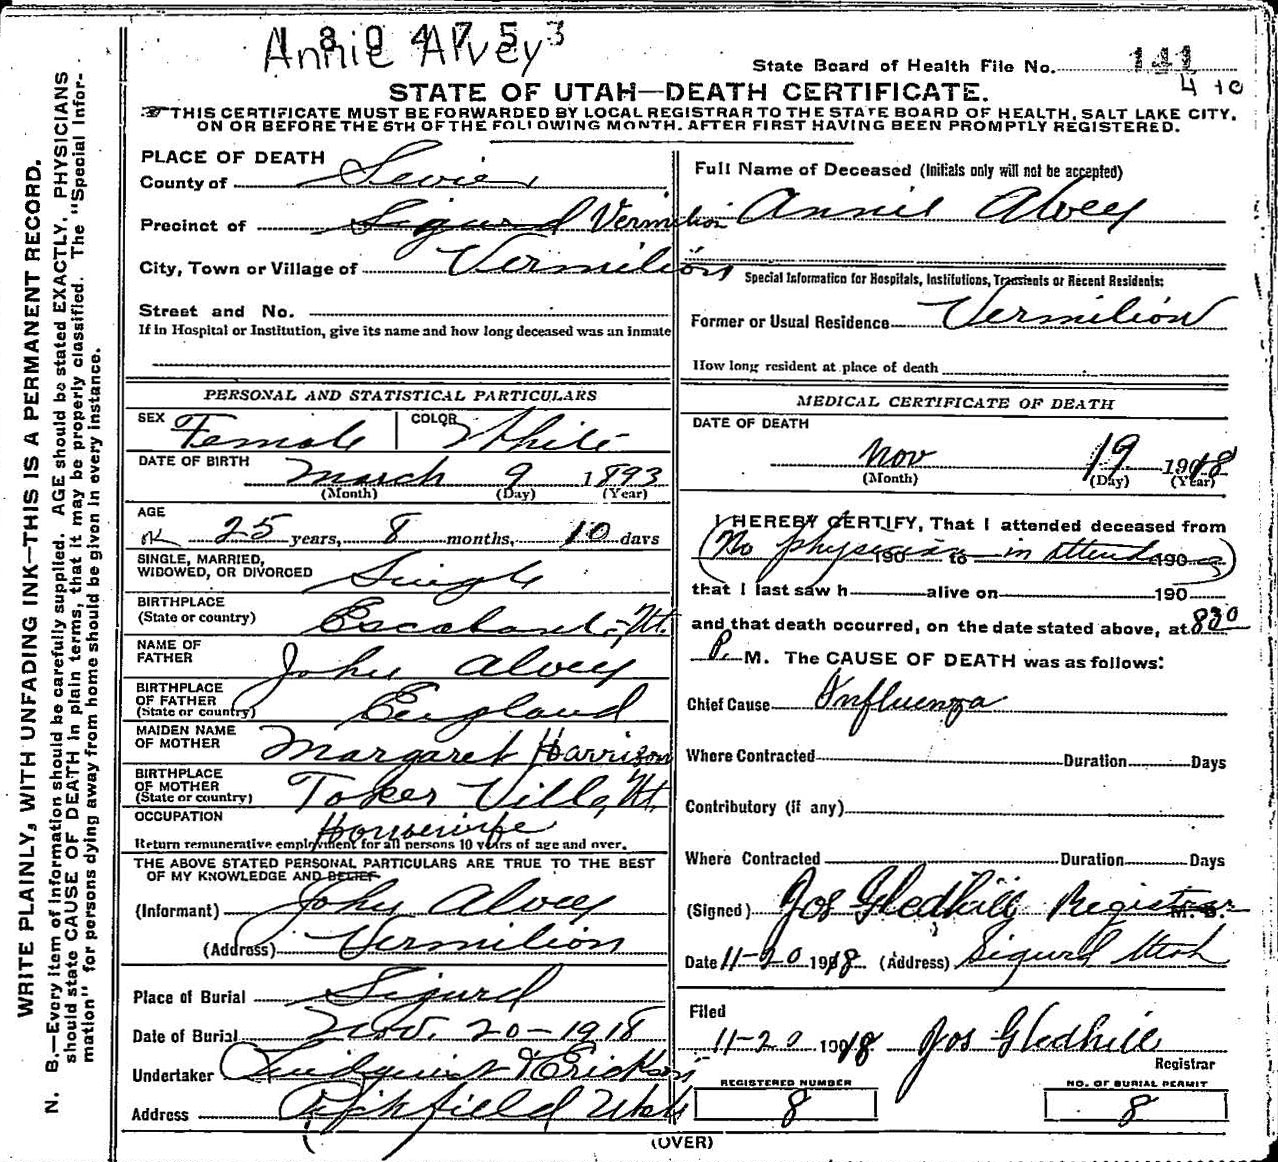 1804753
Annie Alvey
State Board of Health File No. 141
4 10
STATE OF UTAH—DEATH CERTIFICATE.
THIS CERTIFICATE MUST BE FORWARDED BY LOCAL REGISTRAR TO THE STATE BOARD OF HEALTH, SALT LAKE CITY,
ON OR BEFORE THE 5TH OF THE FOLLOWING MONTH, AFTER FIRST HAVING BEEN PROMPTLY REGISTERED.
WRITE PLAINLY, WITH UNFADING INK—THIS IS A PERMANENT RECORD.
N. B.—Every item of information should be carefully supplied. AGE should be stated EXACTLY. PHYSICIANS
should state CAUSE OF DEATH in plain terms, that it may be properly classified. The "Special Infor-
mation" for persons dying away from home should be given in every instance.
PLACE OF DEATH
County of Sevier
Precinct of Sigurd Vermilion
City, Town or Village of Vermilion
Street and No.
If in Hospital or Institution, give its name and how long deceased was an inmate
Full Name of Deceased (Initials only will not be accepted)
Annie Alvey
Special Information for Hospitals, Institutions, Transients or Recent Residents:
Former or Usual Residence Vermilion
How long resident at place of death
PERSONAL AND STATISTICAL PARTICULARS
SEX Female COLOR White
DATE OF BIRTH
March 9 1893
(Month) (Day) (Year)
AGE
OK 25 years, 8 months, 10 days
SINGLE, MARRIED,
WIDOWED, OR DIVORCED Single
BIRTHPLACE
(State or country) Escalante, Ut.
NAME OF
FATHER John Alvey
BIRTHPLACE
OF FATHER
(State or country) England
MAIDEN NAME
OF MOTHER Margaret Harrison
BIRTHPLACE
OF MOTHER
(State or country) Toker Ville, Ut.
OCCUPATION
Housewife
Return remunerative employment for all persons 10 years of age and over.
THE ABOVE STATED PERSONAL PARTICULARS ARE TRUE TO THE BEST
OF MY KNOWLEDGE AND BELIEF
(Informant) John Alvey
(Address) Vermilion
Place of Burial Sigurd
Date of Burial Nov. 20-1918
Undertaker Lindquist & Erickson
Address Richfield Utah
MEDICAL CERTIFICATE OF DEATH
DATE OF DEATH
Nov 19 1918
(Month) (Day) (Year)
I HEREBY CERTIFY, That I attended deceased from
(No physician 190 to in attendance 190 )
that I last saw h alive on 190
and that death occurred, on the date stated above, at 830
P. M. The CAUSE OF DEATH was as follows:
Chief Cause Influenza
Where Contracted Duration Days
Contributory (if any)
Where Contracted Duration Days
(Signed) Jos Gledhill Registrar M. D.
Date 11-20 1918 (Address) Sigurd Utah
Filed
11-20 1918 Jos Gledhill
Registrar
REGISTERED NUMBER
8
NO. OF BURIAL PERMIT
8
(OVER)